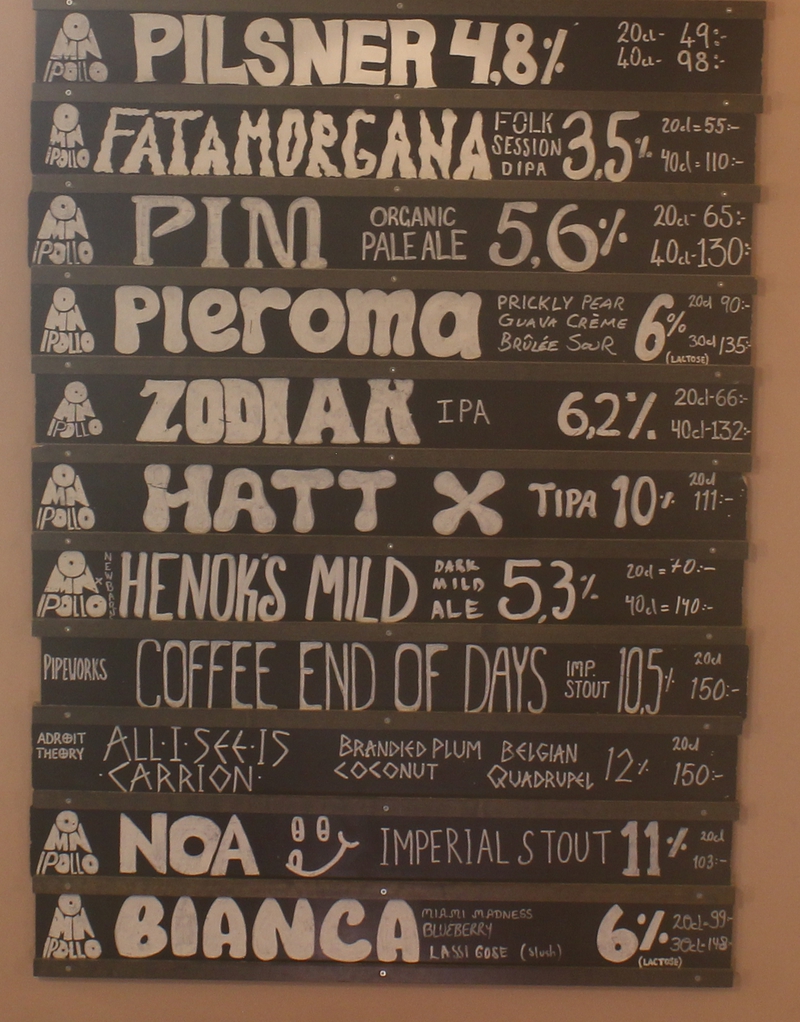 OMNIPOLLO PILSNER 4,8% 20cl- 49:-
40cl- 98:-
OMNIPOLLO FATAMORGANA FOLK SESSION DIPA 3,5% 20cl=55:-
40cl=110:-
OMNIPOLLO PIM ORGANIC PALE ALE 5,6% 20cl- 65:-
40cl-130:-
OMNIPOLLO Pleroma PRICKLY PEAR GUAVA CRÈME BRÛLÉE SOUR 6% (LACTOSE) 20cl 90:-
30cl 135:-
OMNIPOLLO ZODIAK IPA 6,2% 20cl-66:-
40cl-132:-
OMNIPOLLO HATT X TIPA 10% 20cl
111:-
OMNIPOLLO X HENOK'S MILD DARK MILD ALE 5,3% 20cl=70:-
40cl=140:-
PIPEWORKS COFFEE END OF DAYS IMP. STOUT 10,5% 20cl
150:-
ADROIT THEORY ALL·I·SEE·IS ·CARRION· BRANDIED PLUM COCONUT BELGIAN QUADRUPEL 12% 20cl
150:-
OMNIPOLLO NOA IMPERIAL STOUT 11% 20cl
103:-
OMNIPOLLO BIANCA MIAMI MADNESS BLUEBERRY LASSI GOSE (slush) 6% (LACTOSE) 20cl-99-
30cl-148-